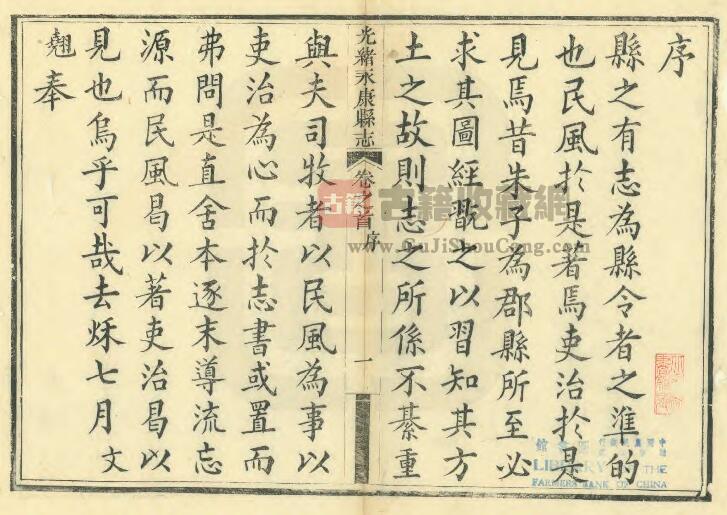 序
縣之有志為縣令者之準的
也民風於是著焉吏治於是
見焉昔朱子為郡縣所至必
求其圖經觀之以習知其方
土之故則志之所係不綦重
光緒永康縣志 卷之首 序 一
與夫司牧者以民風為事以
吏治為心而於志書或置而
弗問是直舍本逐末導流忘
源而民風曷以著吏治曷以
見也烏乎可哉去秌七月文
翹奉
古籍
古籍收藏網
www.GuJiShouCang.com
LIBRARY THE
FARMERS BANK OF CHINA